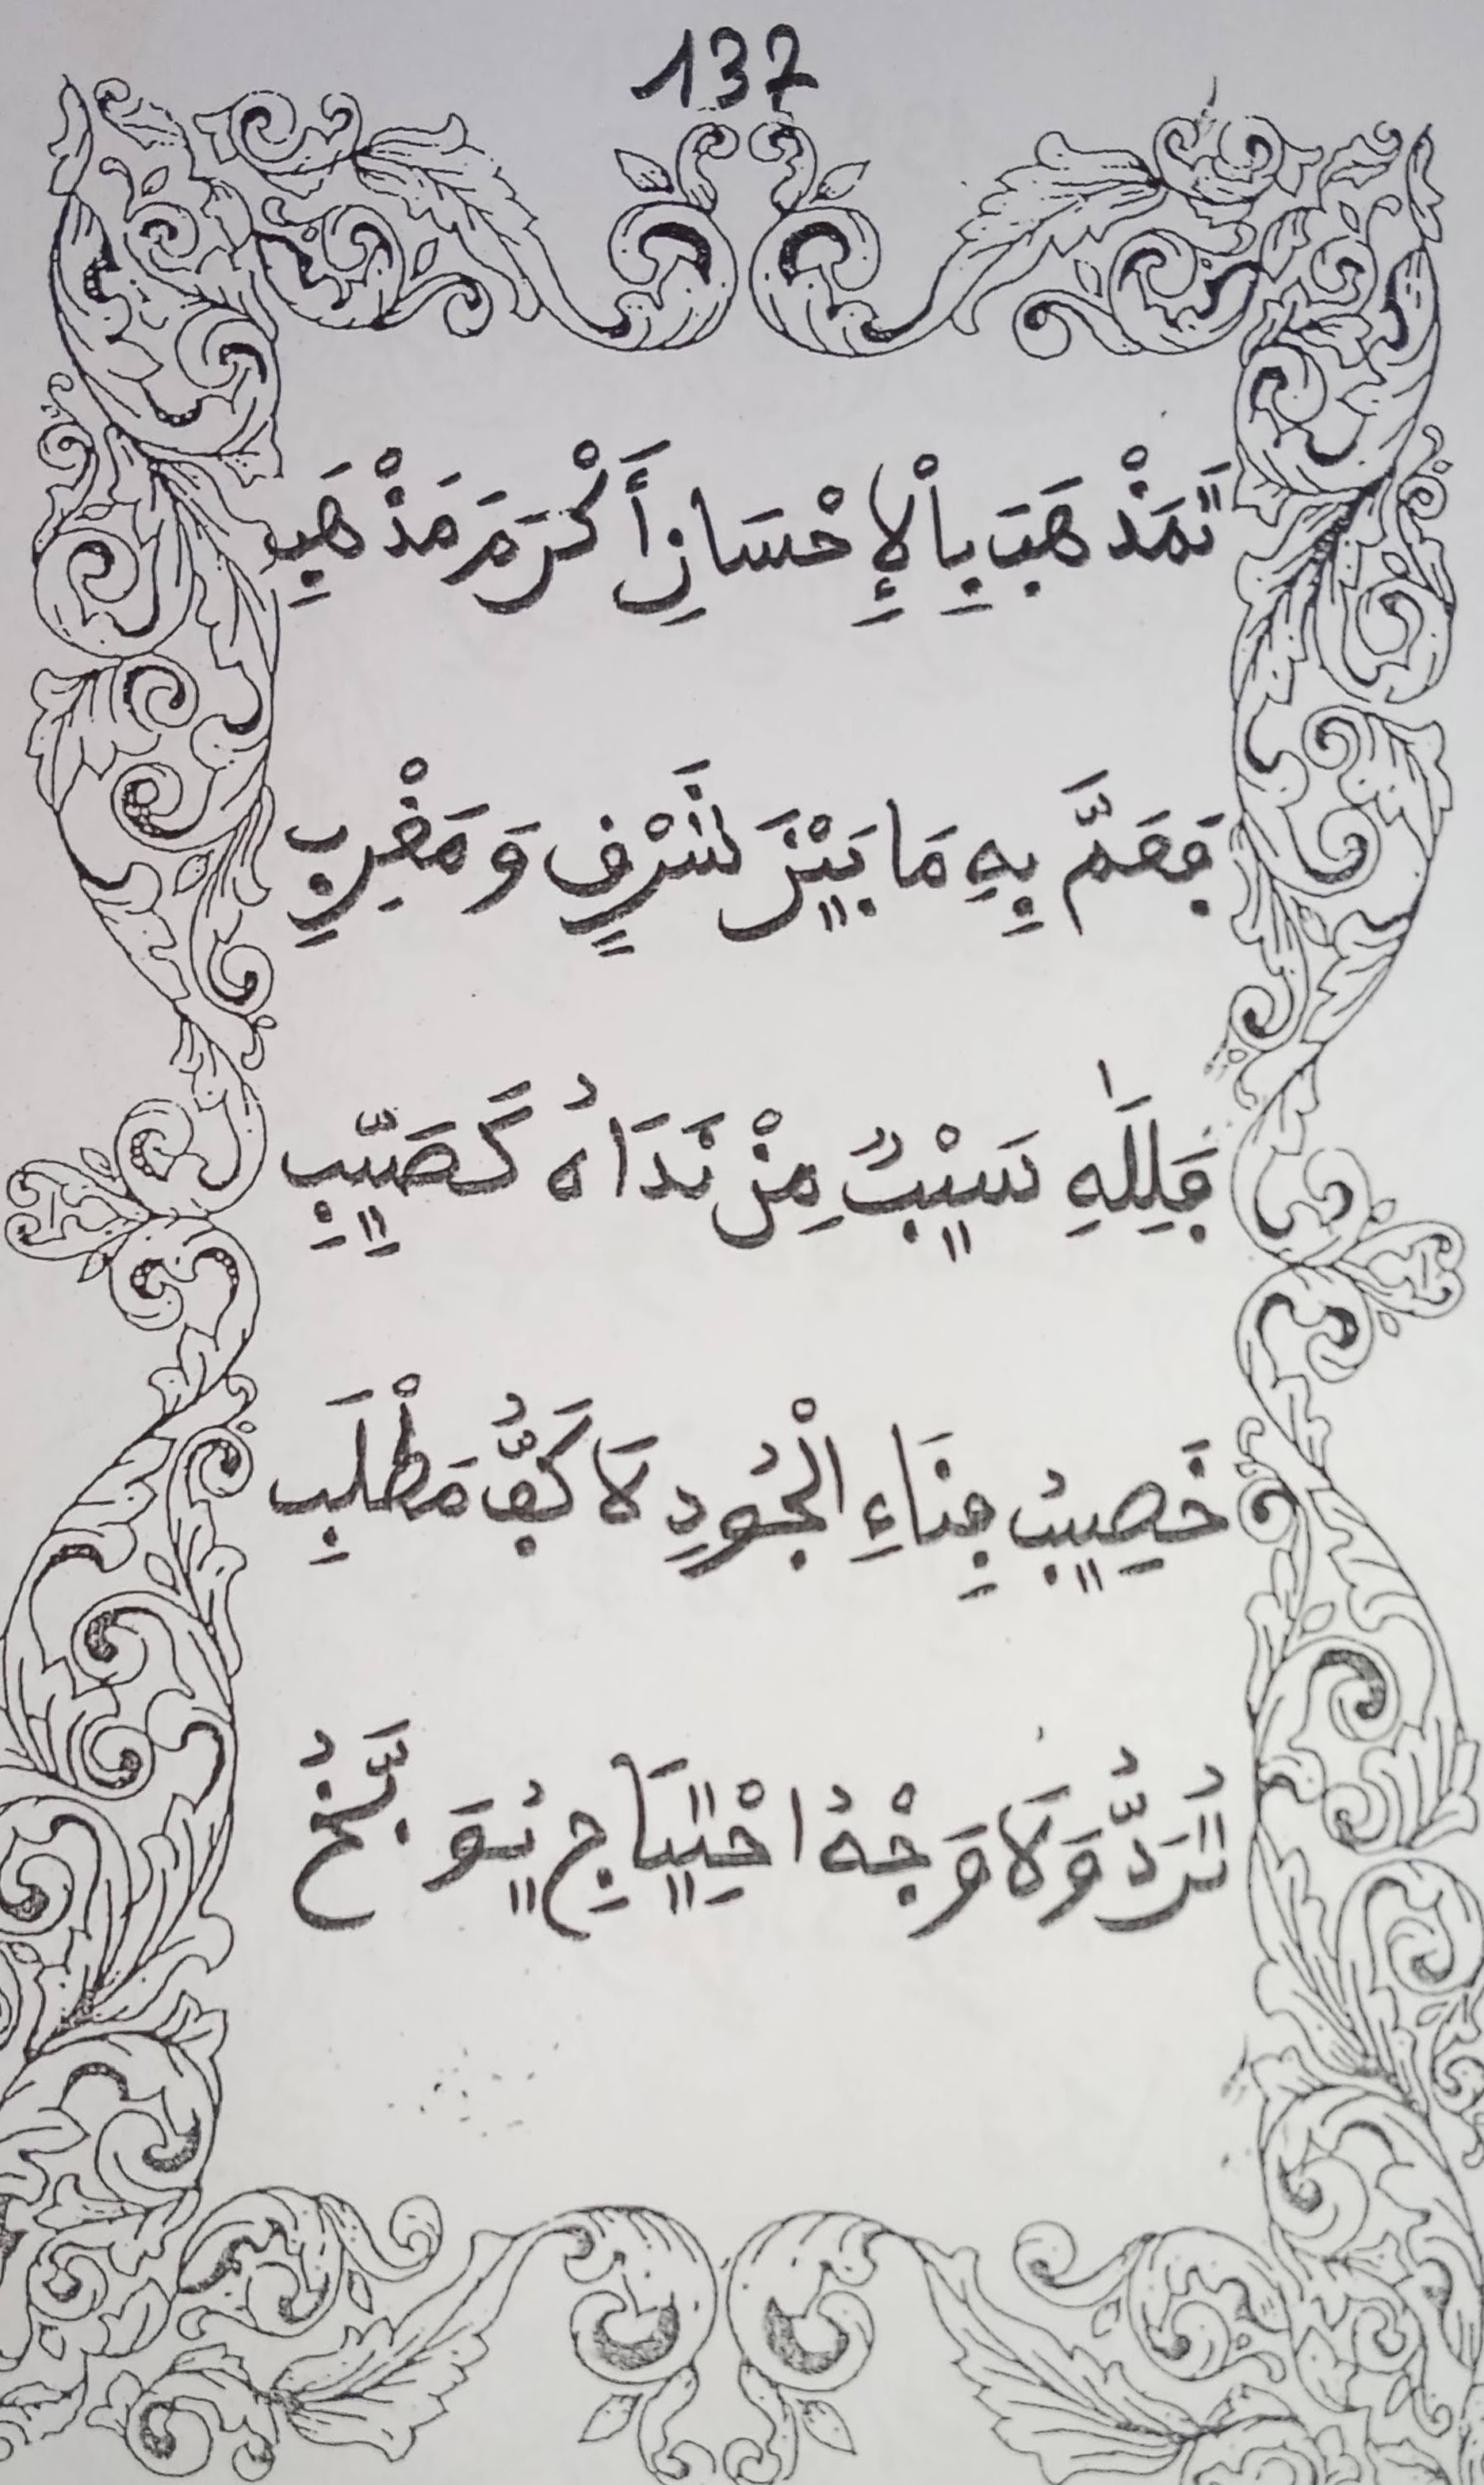 137
تَمَذْهَبَ بِاْلإِحْسَانِ أَكْرَمَ مَذْهَبِ
فَعَمَّ بِهِ مَا بَيْنَ شَرْقٍ وَمَغْرِبِ
فَلِلَّهِ سَيْبٌ مِنْ نَدَاهُ كَصَيِّبِ
خَصِيبُ فِنَاءِ الْجُودِ لَا كَفُّ مَطْلَبِ
تُرَدُّ وَلَا وَجْهُ احْتِيَاجِ يُوَبَّخُ